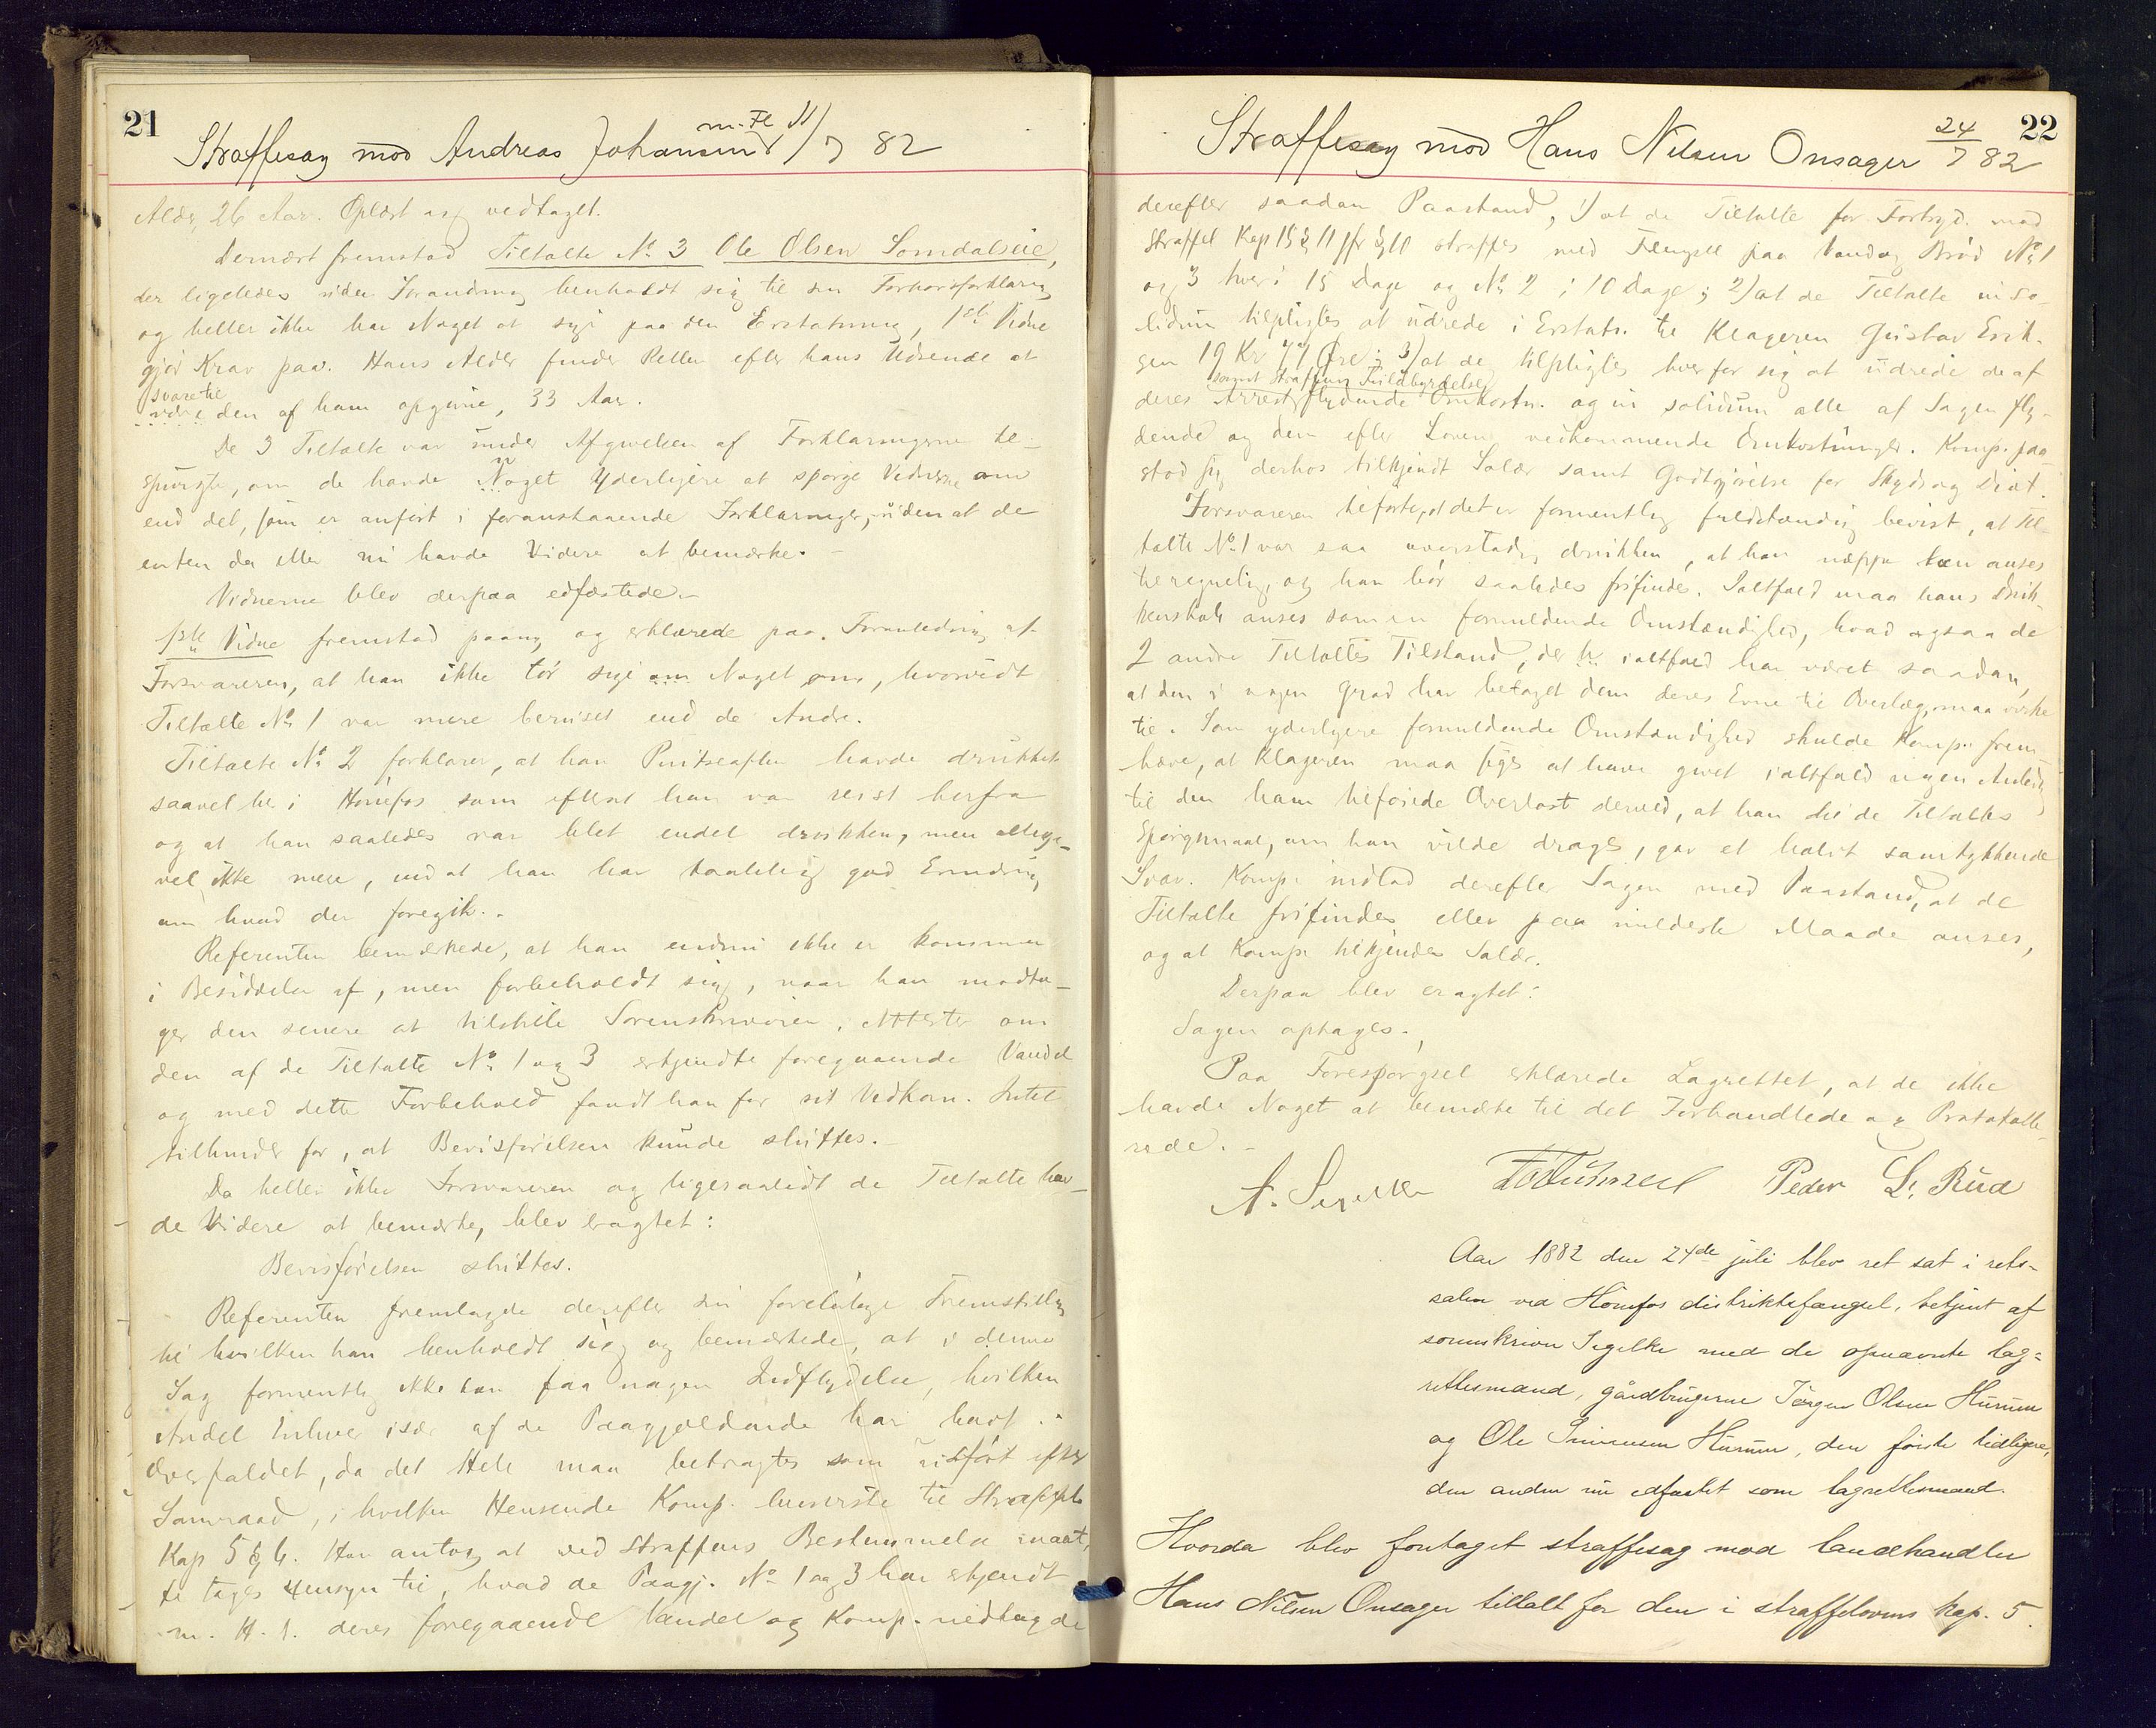 21
Straffesag mod Andreas Johansen m. Fl 11/7 82
Alder, 26 Aar. Oplæst og vedtaget.
Dernæst fremstod Tiltalte No. 3 Ole Olsen Somdalseie,
der ligeledes uden Forandring henholdt sig til sin Forhørsforklaring
og heller ikke har Noget at sige paa den Erstatning, 1ste Vidne
gjør Krav paa. Hans Alder finder Retten efter hans Udseende at
svare til den af ham opgivne, 33 Aar.
De 3 Tiltalte var under Afgivelsen af Forklaringerne be-
spurgte, om de havde Noget Yderligere at spørge Vidnerne om
end det, som er anført i foranstaaende Forklaringer, uden at de
enten da eller nu havde Videre at bemærke. -
Vidnerne blev derpaa edfæstede. -
1ste Vidne fremstod paany og erklærede paa Foranledning af
Forsvareren, at han ikke tør sige Noget om, hvorvidt
Tiltalte No. 1 var mere beruset end de Andre.
Tiltalte No. 2 forklarer, at han Pintseaften havde drukket
saavel her i Hønefos som efterat han var reist herfra
og at han saaledes var blet endel drukken, men allige-
vel ikke mere, end at han har taalelig god Erindring
om hvad der foregik. -
Referenten bemærkede, at han endnu ikke er kommen
i Besiddelse af, men forbeholdt sig, naar han modta-
ger den senere at tilstille Sorenskriveren, Attester om
den af de Tiltalte No. 1 og 3 erkjendte foregaaende Vandel
og med dette Forbehold fandt han for sit Vedkom. Intet
tilhinder for, at Bevisførelsen kunde sluttes. -
Da heller ikke Forsvareren og ligesaalidt de Tiltalte hav-
de Videre at bemærke, blev eragtet:
Bevisførelsen sluttes.
Referenten fremlagde derefter sin foreløbige Fremstilling
til hvilken han henholdt sig og bemærkede, at i denne
Sag formentlig ikke kan faa nogen Indflydelse, hvilken
Andel Enhver især af de Paagjældende har havt i
Overfaldet, da det Hele maa betragtes som udført efter
Samraad, i hvilken Henseende Komp. henviste til Straffel.
Kap 5 § 4. Han antog at ved Straffens Bestemmelse maat-
te tages Hensyn til, hvad de Paagj. No. 1 og 3 har erkjendt
m. H. t. deres foregaaende Vandel og Komp. nedlagde
22
Straffesag mod Hans Nilsen Onsager 24/7 82
derefter saadan Paastand, 1) at de Tiltalte for Forbryd. mod
Straffel Kap 15 § 11 jfr § 10 straffes med Fængsel paa Vand og Brød No. 1
og 3 hver i 15 Dage og No. 2 i 10 Dage; 2) at de Tiltalte in so-
lidum tilpligtes at udrede i Erstatn. til Klageren Gustav Erik-
sen 19 Kr 77 Øre; 3) at de tilpligtes hver for sig at udrede de af
deres Arrest samt Straffens Fuldbyrdelse flydende Omkostn. og in solidum alle af Sagen fly-
dende og dem efter Loven vedkommende Omkostninger. Komp. paa-
stod sig derhos tilkjendt Salær samt Godtgjørelse for Skyds og Diæt.
Forsvareren tilførte, at det er formentlig fuldstændig bevist, at Til-
talte No. 1 var saa overstadig drukken, at han næppe kan anses
tilregnelig, og han bør saaledes frifindes. Ialtfald maa hans Druk-
kenskab anses som en formildende Omstændighed, hvad ogsaa de
2 andre Tiltaltes Tilstand, der ialtfald har været saadan,
at den i nogen Grad har betaget dem deres Evne til Overlæg, maa virke
til. Som yderligere formildende Omstændighed skulde Komp. frem-
hæve, at Klageren maa siges at have givet ialtfald nogen Anledn.
til den ham tilføiede Overlast derved, at han til de Tiltaltes
Spørgsmaal, om han vilde drages, gav et halvt samtykkende
Svar. Komp. indlod derefter Sagen med Paastand, at de
Tiltalte frifindes eller paa mildeste Maade anses,
og at Komp. tilkjendes Salær.
Derpaa blev eragtet:
Sagen optages. -
Paa Forespørgsel erklærede Lagrettet, at de ikke
havde Noget at bemærke til det Forhandlede og Protokolle-
rede. -
A. Segelke Peder L. Rud
Aar 1882 den 24de juli blev ret sat i rets-
salen ved Hönefos distriktsfængsel, betjent af
sorenskriver Segelke med de opnævnte lag-
rettesmænd, gårdbrugerne Jørgen Olsen Hurum
og Ole Hurum, den første tidligere,
den anden nu edfæstet som lagrettesmænd.
Hvorda blev foretaget straffesag mod landhandler
Hans Nilsen Onsager tiltalt for den i straffelovens kap. 5.